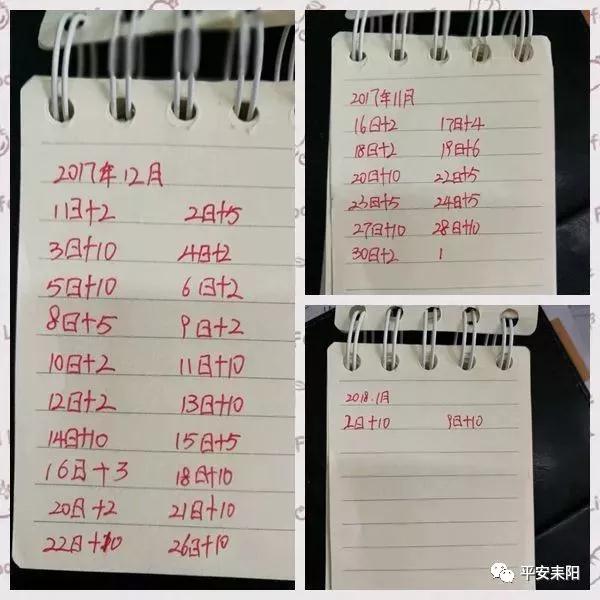 2017年12月
1日+2 2日+5
3日+10 4日+2
5日+10 6日+2
8日+5 9日+2
10日+2 11日+10
12日+2 13日+10
14日+10 15日+5
16日+3 18日+10
20日+2 21日+10
22日+10 26日+10
2017年11月
16日+2 17日+4
18日+2 19日+6
20日+10 22日+5
23日+5 24日+5
27日+10 28日+10
30日+2 1
2018.1月
2日+10 9日+10
平安耒阳